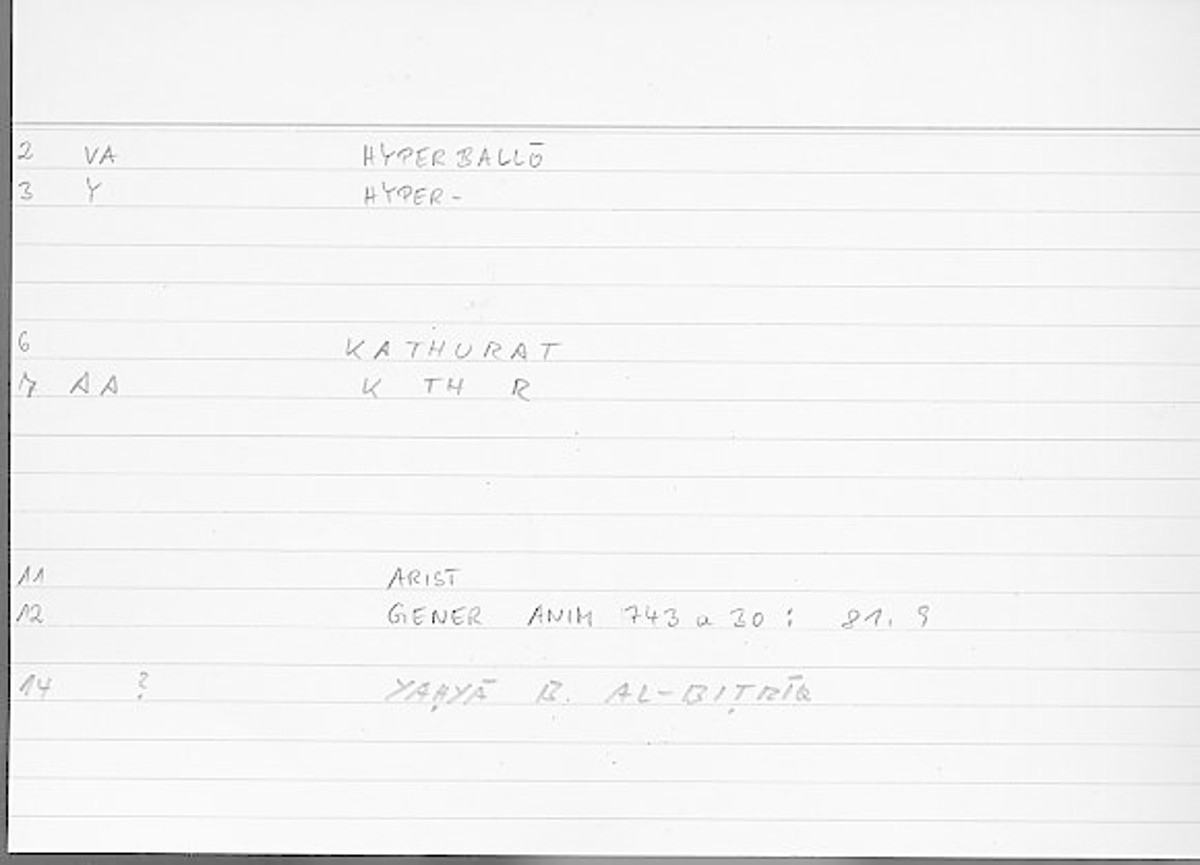 2 VA HYPERBALLŌ
3 Y HYPER-
6 KATHURAT
7 AA K TH R
11 ARIST
12 GENER ANIM 743 a 30 : 81. 9
14 ? YAḤYĀ B. AL-BIṬRĪQ